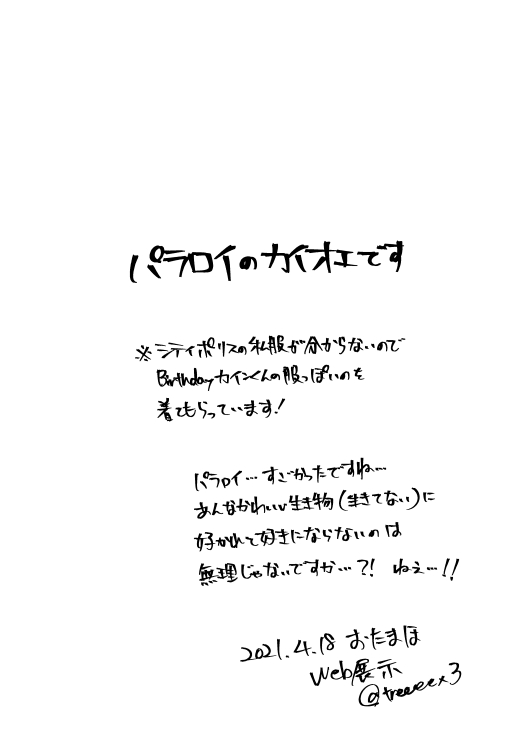 パラロイのカイオエです
※シティポリスの私服が分からないので
Birthdayカインくんの服っぽいのを
着てもらっています!
パラロイ…すごかったですね…
あんなかわいい生き物(生きてない)に
好かれて好きにならないのは
無理じゃないですか…?! ねぇ…!!
2021.4.18 おたまほ
Web展示
@treeeex3